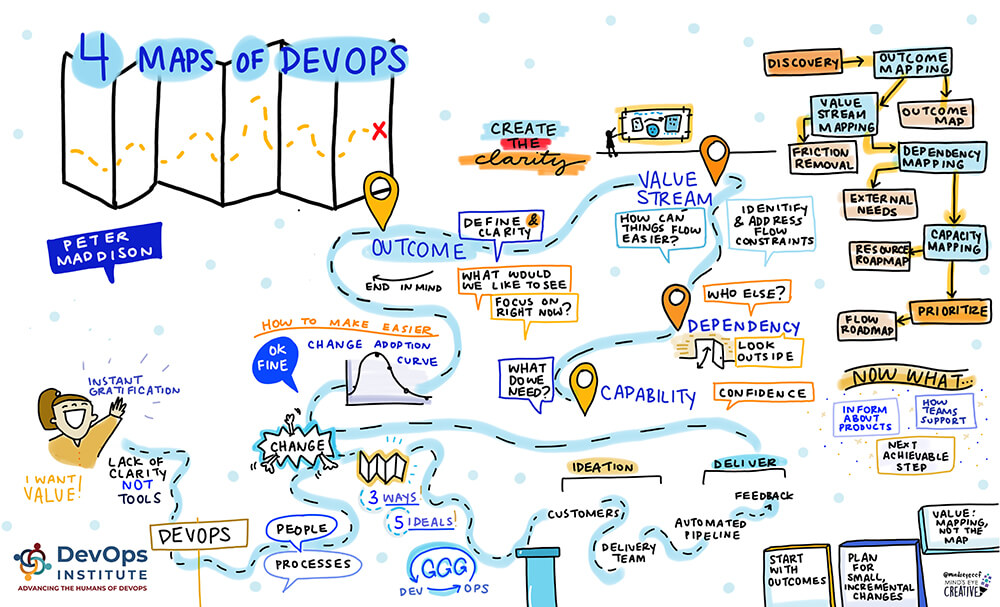 4 MAPS OF DEVOPS
PETER
MADDISON
CREATE
THE
clarity
OUTCOME
DEFINE &
CLARITY
END IN MIND
WHAT WOULD
WE LIKE TO SEE
FOCUS ON
RIGHT NOW?
VALUE
STREAM
HOW CAN
THINGS FLOW
EASIER?
IDENTIFY
& ADDRESS
FLOW
CONSTRAINTS
WHO ELSE?
DEPENDENCY
LOOK
OUTSIDE
WHAT
DO WE
NEED?
CAPABILITY
CONFIDENCE
DISCOVERY
OUTCOME
MAPPING
OUTCOME
MAP
VALUE
STREAM
MAPPING
FRICTION
REMOVAL
DEPENDENCY
MAPPING
EXTERNAL
NEEDS
CAPACITY
MAPPING
RESOURCE
ROADMAP
PRIORITIZE
FLOW
ROADMAP
HOW TO MAKE EASIER
OK
FINE
CHANGE ADOPTION
CURVE
INSTANT
GRATIFICATION
I WANT
VALUE!
LACK OF
CLARITY
NOT
TOOLS
CHANGE
DEVOPS
PEOPLE
PROCESSES
3 WAYS!
5 IDEALS!
GGG
DEV OPS
IDEATION
DELIVER
CUSTOMERS
DELIVERY
TEAM
AUTOMATED
PIPELINE
FEEDBACK
NOW WHAT...
INFORM
ABOUT
PRODUCTS
HOW
TEAMS
SUPPORT
NEXT
ACHIEVABLE
STEP
START
WITH
OUTCOMES
PLAN
FOR
SMALL,
INCREMENTAL
CHANGES
VALUE:
MAPPING,
NOT THE
MAP
DevOps
INSTITUTE
ADVANCING THE HUMANS OF DEVOPS
@mindseyeccf
MIND'S EYE
CREATIVE